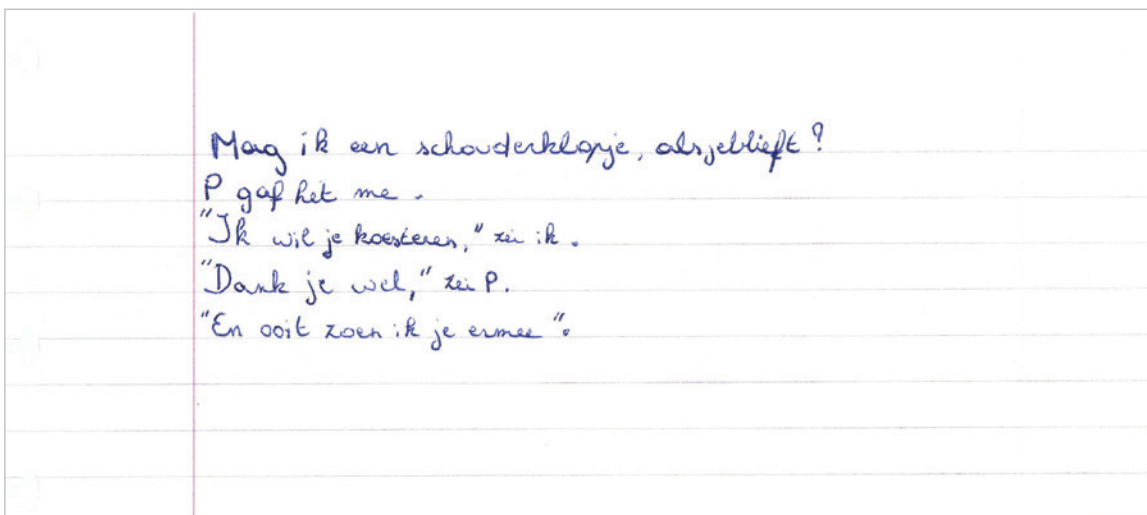 Mag ik een schouderklopje, alsjeblieft?
P gaf het me.
"Ik wil je koesteren," zei ik.
"Dank je wel," zei P.
"En ooit zoen ik je ermee".